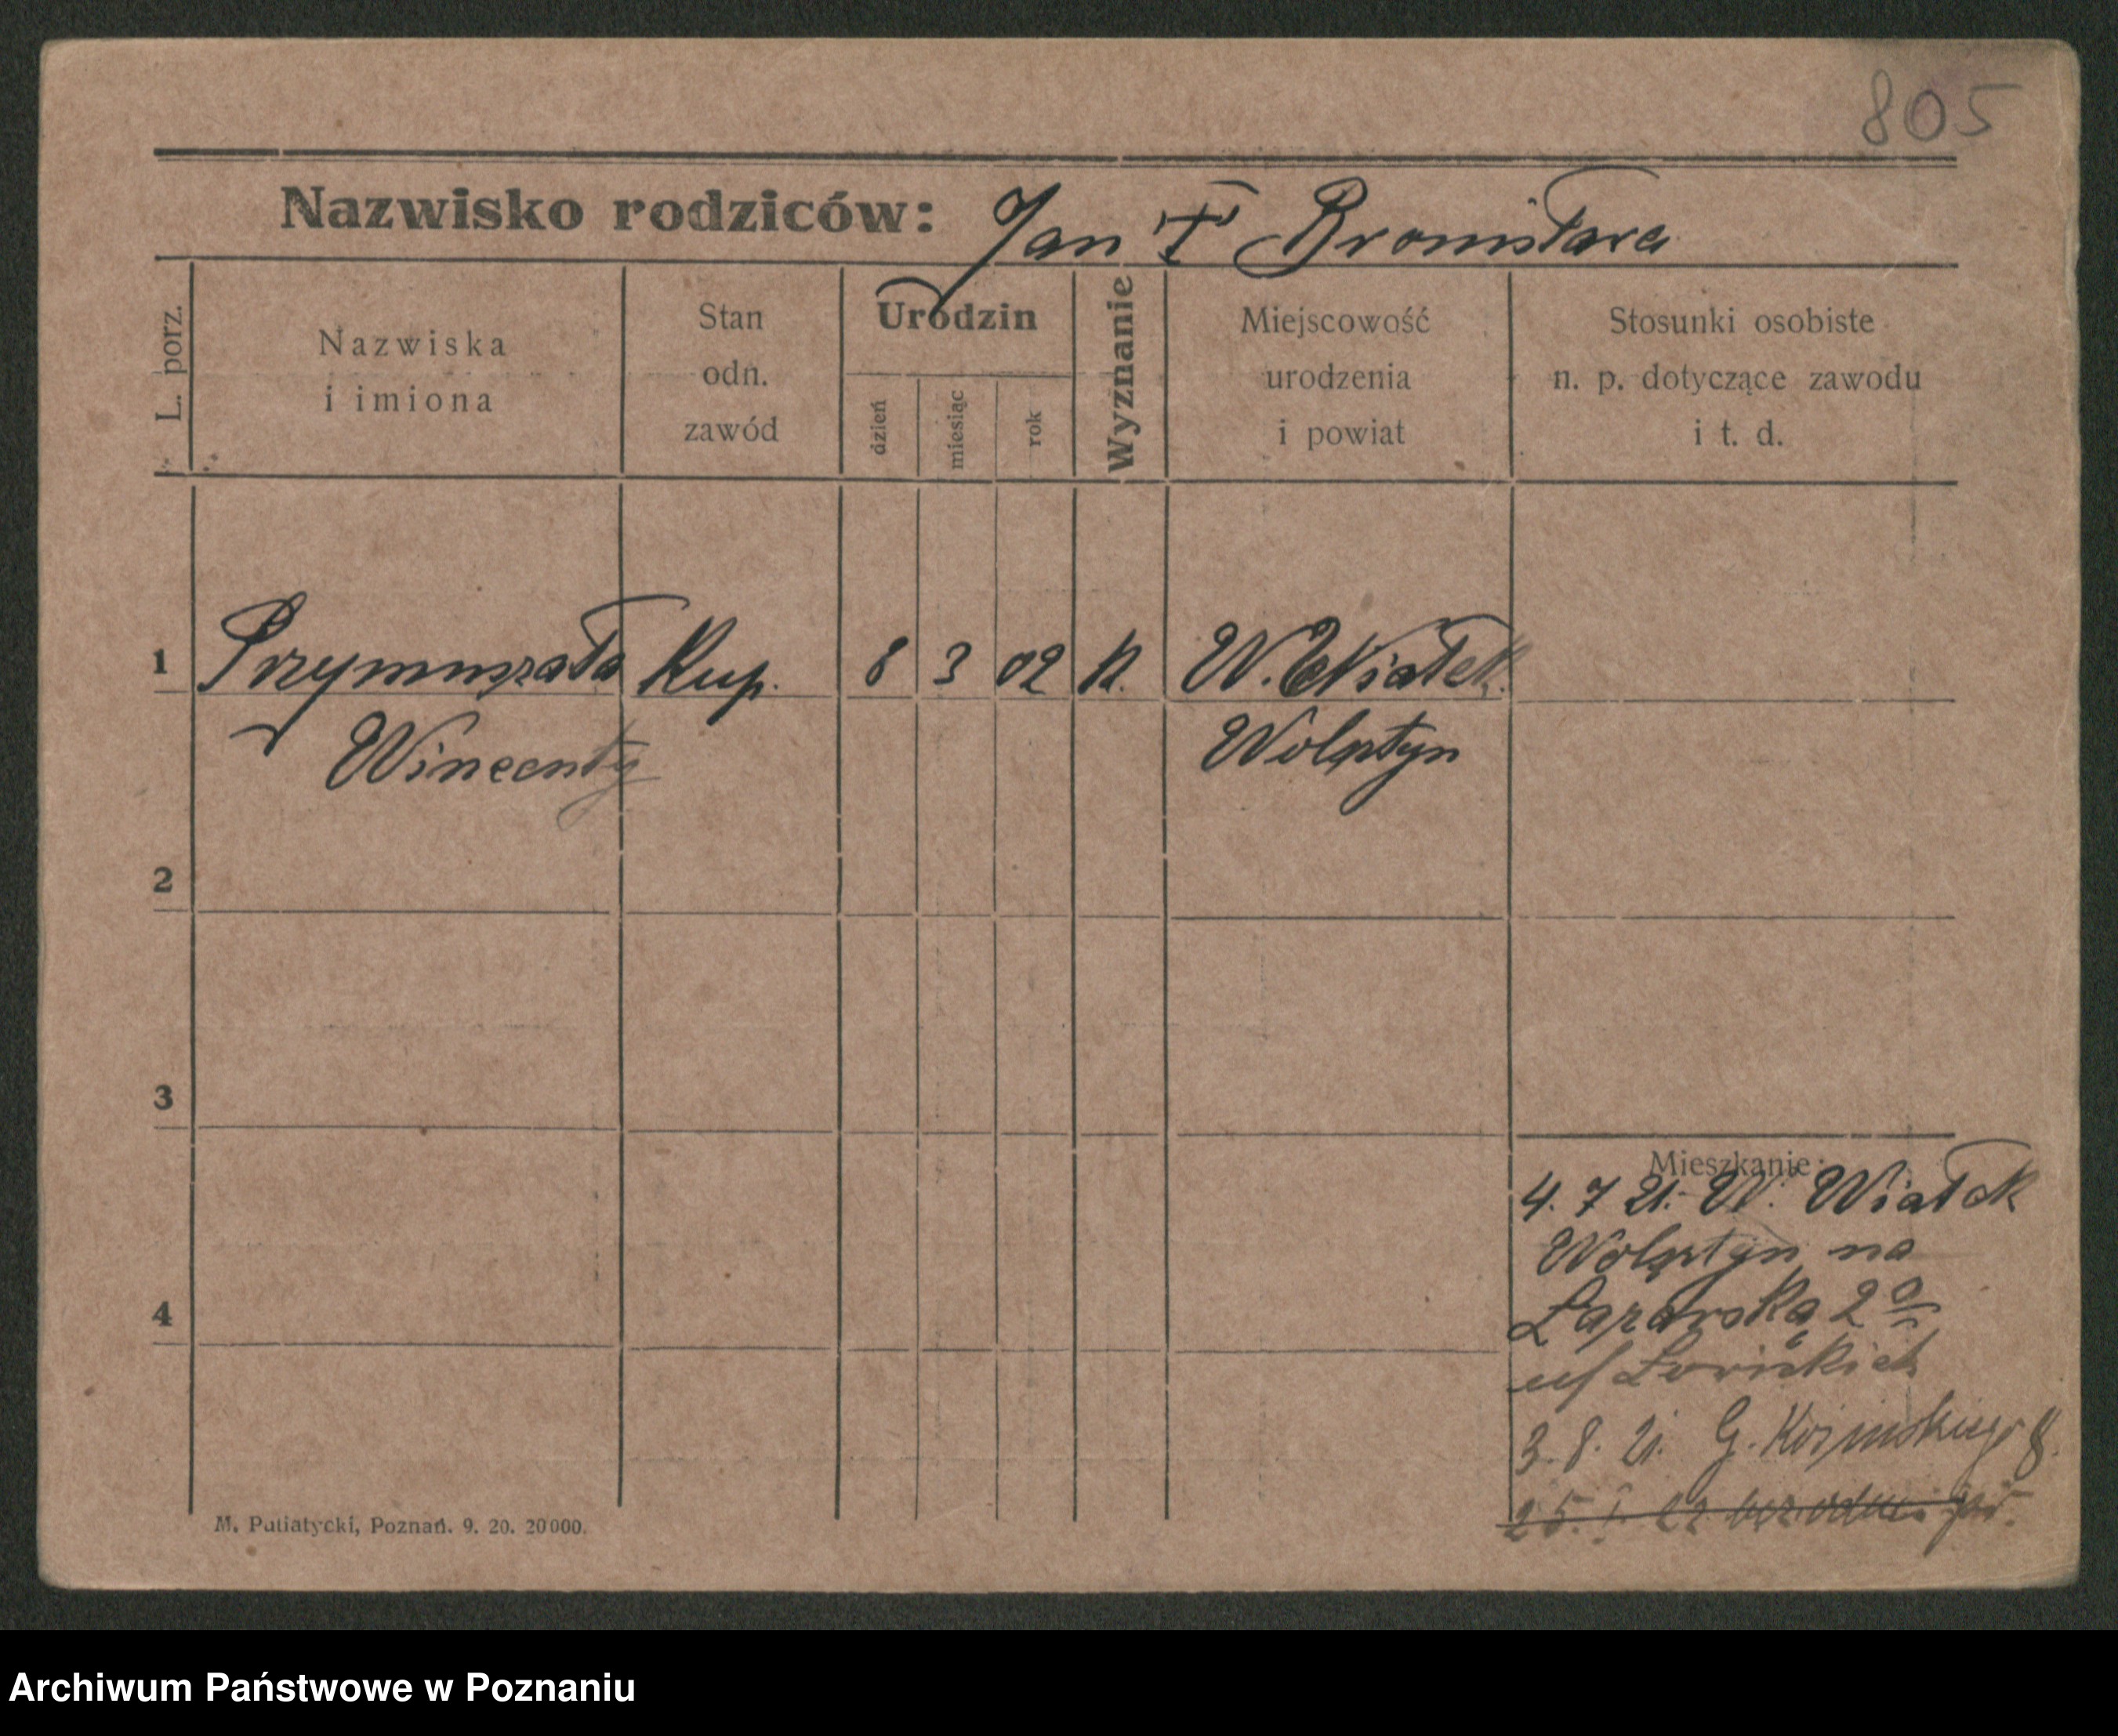 805
Nazwisko rodziców: Jan Bronisława
L. porz.
Nazwiska
i imiona
Stan
odn.
zawód
Urodzin
dzień
miesiąc
rok
Wyznanie
Miejscowość
urodzenia
i powiat
Stosunki osobiste
n. p. dotyczące zawodu
i t. d.
1 Przymuszała Kup. 8 3 02 K. W. Wiałek.
Wincenty Wolsztyn
2
3
4
Mieszkanie:
4. 7 21. W. Wiałek
Wolsztyn na
Łazarską 2a
Łowińskich
3. 8. 21. G.
25.
M. Putiatycki, Poznań. 9. 20. 20000.
Archiwum Państwowe w Poznaniu